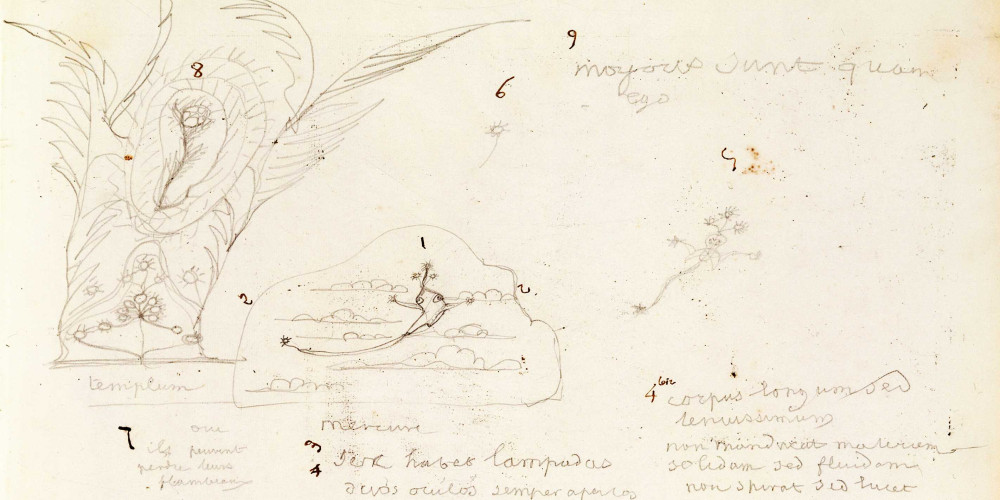 9
moyores sunt quam
ego
8
6
5
1
2
2
templum
mercure
7
ou
ils peuvent
perdre leurs
flambeau
3
4
Sex habet lampadas
duos oculos semper apertos
4 bis
corpus longum sed
tenuissimum
non manducat materiem
solidam sed fluidam
non spirat sed lucet